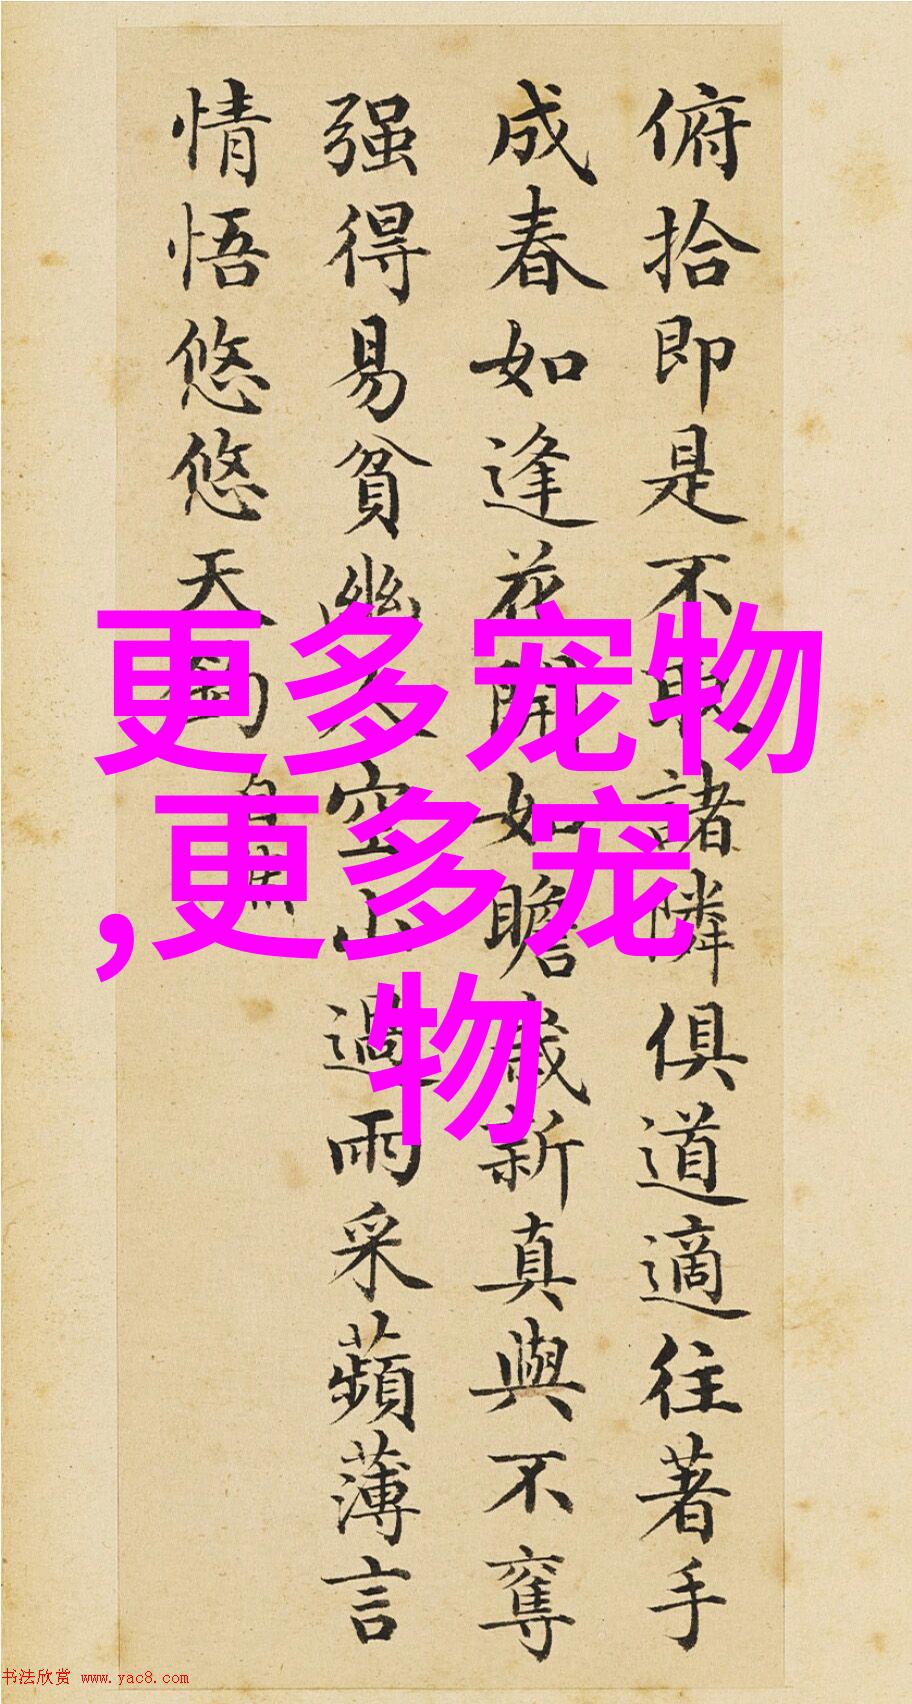 俯拾即是不取諸隣俱道適往著手
成春如逢花開如瞻歲新真與不奪
强得易貧幽人空山過雨采蘋薄言
情悟悠悠天鈞
更多宠物
,更多宠
物
书法欣赏 www.yac8.com